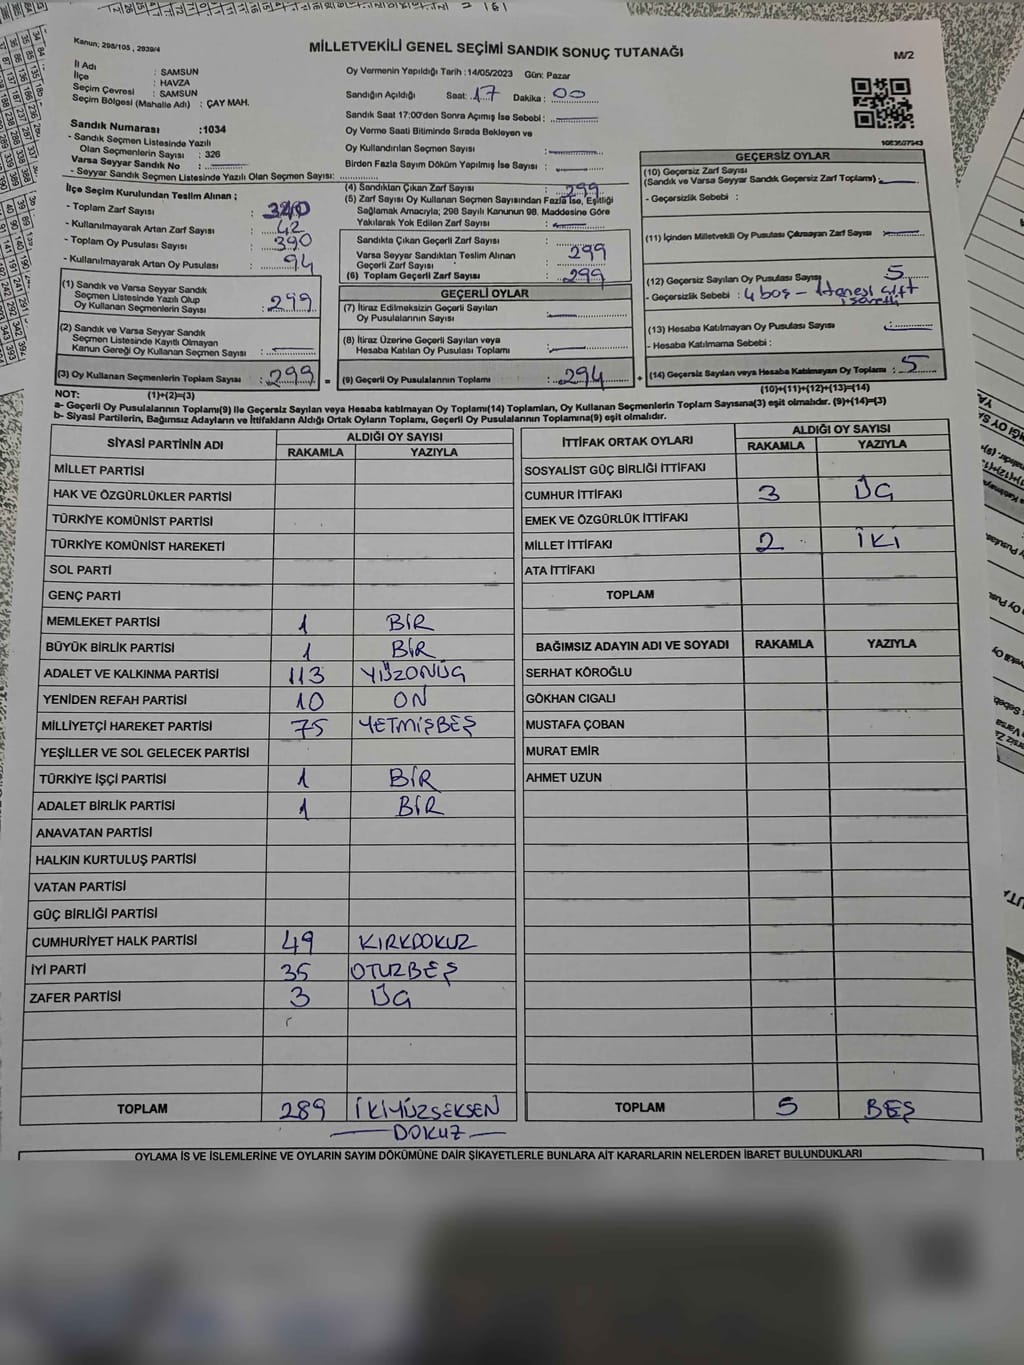 Kanun; 298/105 , 2839/4
MİLLETVEKİLİ GENEL SEÇİMİ SANDIK SONUÇ TUTANAĞI
M/2
İl Adı : SAMSUN
İlçe : HAVZA
Seçim Çevresi : SAMSUN
Seçim Bölgesi (Mahalle Adı) : ÇAY MAH.
Oy Vermenin Yapıldığı Tarih : 14/05/2023 Gün: Pazar
Sandığın Açıldığı Saat: 17 Dakika : 00
Sandık Saat 17:00'den Sonra Açımış İse Sebebi :
Oy Verme Saati Bitiminde Sırada Bekleyen ve
Oy Kullandırılan Seçmen Sayısı :
Birden Fazla Sayım Döküm Yapılmış İse Sayısı :
Sandık Numarası :1034
- Sandık Seçmen Listesinde Yazılı
Olan Seçmenlerin Sayısı : 326
Varsa Seyyar Sandık No :
- Seyyar Sandık Seçmen Listesinde Yazılı Olan Seçmen Sayısı:
İlçe Seçim Kurulundan Teslim Alınan ;
- Toplam Zarf Sayısı : 340
- Kullanılmayarak Artan Zarf Sayısı : 42
- Toplam Oy Pusulası Sayısı : 390
- Kullanılmayarak Artan Oy Pusulası : 94
(1) Sandık ve Varsa Seyyar Sandık
Seçmen Listesinde Yazılı Olup
Oy Kullanan Seçmenlerin Sayısı : 299
(2) Sandık ve Varsa Seyyar Sandık
Seçmen Listesinde Kayıtlı Olmayan
Kanun Gereği Oy Kullanan Seçmen Sayısı :
(3) Oy Kullanan Seçmenlerin Toplam Sayısı : 299 =
(4) Sandıktan Çıkan Zarf Sayısı : 299
(5) Zarf Sayısı Oy Kullanan Seçmen Sayısından Fazla İse, Eşitliği
Sağlamak Amacıyla; 298 Sayılı Kanunun 98. Maddesine Göre
Yakılarak Yok Edilen Zarf Sayısı :
Sandıkta Çıkan Geçerli Zarf Sayısı : 299
Varsa Seyyar Sandıktan Teslim Alınan
Geçerli Zarf Sayısı :
(6) Toplam Geçerli Zarf Sayısı : 299
GEÇERLİ OYLAR
(7) İtiraz Edilmeksizin Geçerli Sayılan
Oy Pusulalarının Sayısı :
(8) İtiraz Üzerine Geçerli Sayılan veya
Hesaba Katılan Oy Pusulası Toplamı :
(9) Geçerli Oy Pusulalarının Toplamı : 294 +
GEÇERSİZ OYLAR
(10) Geçersiz Zarf Sayısı
(Sandık ve Varsa Seyyar Sandık Geçersiz Zarf Toplamı) :
- Geçersizlik Sebebi :
(11) İçinden Milletvekili Oy Pusulası Çıkmayan Zarf Sayısı :
(12) Geçersiz Sayılan Oy Pusulası Sayısı : 5
- Geçersizlik Sebebi : 4 boş - 1 tanesi çift
işaretli
(13) Hesaba Katılmayan Oy Pusulası Sayısı :
- Hesaba Katılmama Sebebi :
(14) Geçersiz Sayılan veya Hesaba Katılmayan Oy Toplamı : 5
NOT: (1)+(2)=(3)
(10)+(11)+(12)+(13)=(14)
a- Geçerli Oy Pusulalarının Toplamı(9) ile Geçersiz Sayılan veya Hesaba katılmayan Oy Toplamı(14) Toplamları, Oy Kullanan Seçmenlerin Toplam Sayısına(3) eşit olmalıdır. (9)+(14)=(3)
b- Siyasi Partilerin, Bağımsız Adayların ve İttifakların Aldığı Ortak Oyların Toplamı, Geçerli Oy Pusulalarının Toplamına(9) eşit olmalıdır.
SİYASİ PARTİNİN ADI ALDIĞI OY SAYISI
RAKAMLA YAZIYLA
MİLLET PARTİSİ
HAK VE ÖZGÜRLÜKLER PARTİSİ
TÜRKİYE KOMÜNİST PARTİSİ
TÜRKİYE KOMÜNİST HAREKETİ
SOL PARTİ
GENÇ PARTİ
MEMLEKET PARTİSİ 1 BİR
BÜYÜK BİRLİK PARTİSİ 1 BİR
ADALET VE KALKINMA PARTİSİ 113 YÜZONÜÇ
YENİDEN REFAH PARTİSİ 10 ON
MİLLİYETÇİ HAREKET PARTİSİ 75 YETMİŞBEŞ
YEŞİLLER VE SOL GELECEK PARTİSİ
TÜRKİYE İŞÇİ PARTİSİ 1 BİR
ADALET BİRLİK PARTİSİ 1 BİR
ANAVATAN PARTİSİ
HALKIN KURTULUŞ PARTİSİ
VATAN PARTİSİ
GÜÇ BİRLİĞİ PARTİSİ
CUMHURİYET HALK PARTİSİ 49 KIRKDOKUZ
İYİ PARTİ 35 OTUZBEŞ
ZAFER PARTİSİ 3 ÜÇ
TOPLAM 289 İKİYÜZSEKSEN
DOKUZ
İTTİFAK ORTAK OYLARI ALDIĞI OY SAYISI
RAKAMLA YAZIYLA
SOSYALİST GÜÇ BİRLİĞİ İTTİFAKI
CUMHUR İTTİFAKI 3 ÜÇ
EMEK VE ÖZGÜRLÜK İTTİFAKI
MİLLET İTTİFAKI 2 İKİ
ATA İTTİFAKI
TOPLAM
BAĞIMSIZ ADAYIN ADI VE SOYADI RAKAMLA YAZIYLA
SERHAT KÖROĞLU
GÖKHAN CIGALI
MUSTAFA ÇOBAN
MURAT EMİR
AHMET UZUN
TOPLAM 5 BEŞ
OYLAMA İŞ VE İŞLEMLERİNE VE OYLARIN SAYIM DÖKÜMÜNE DAİR ŞİKAYETLERLE BUNLARA AİT KARARLARIN NELERDEN İBARET BULUNDUKLARI